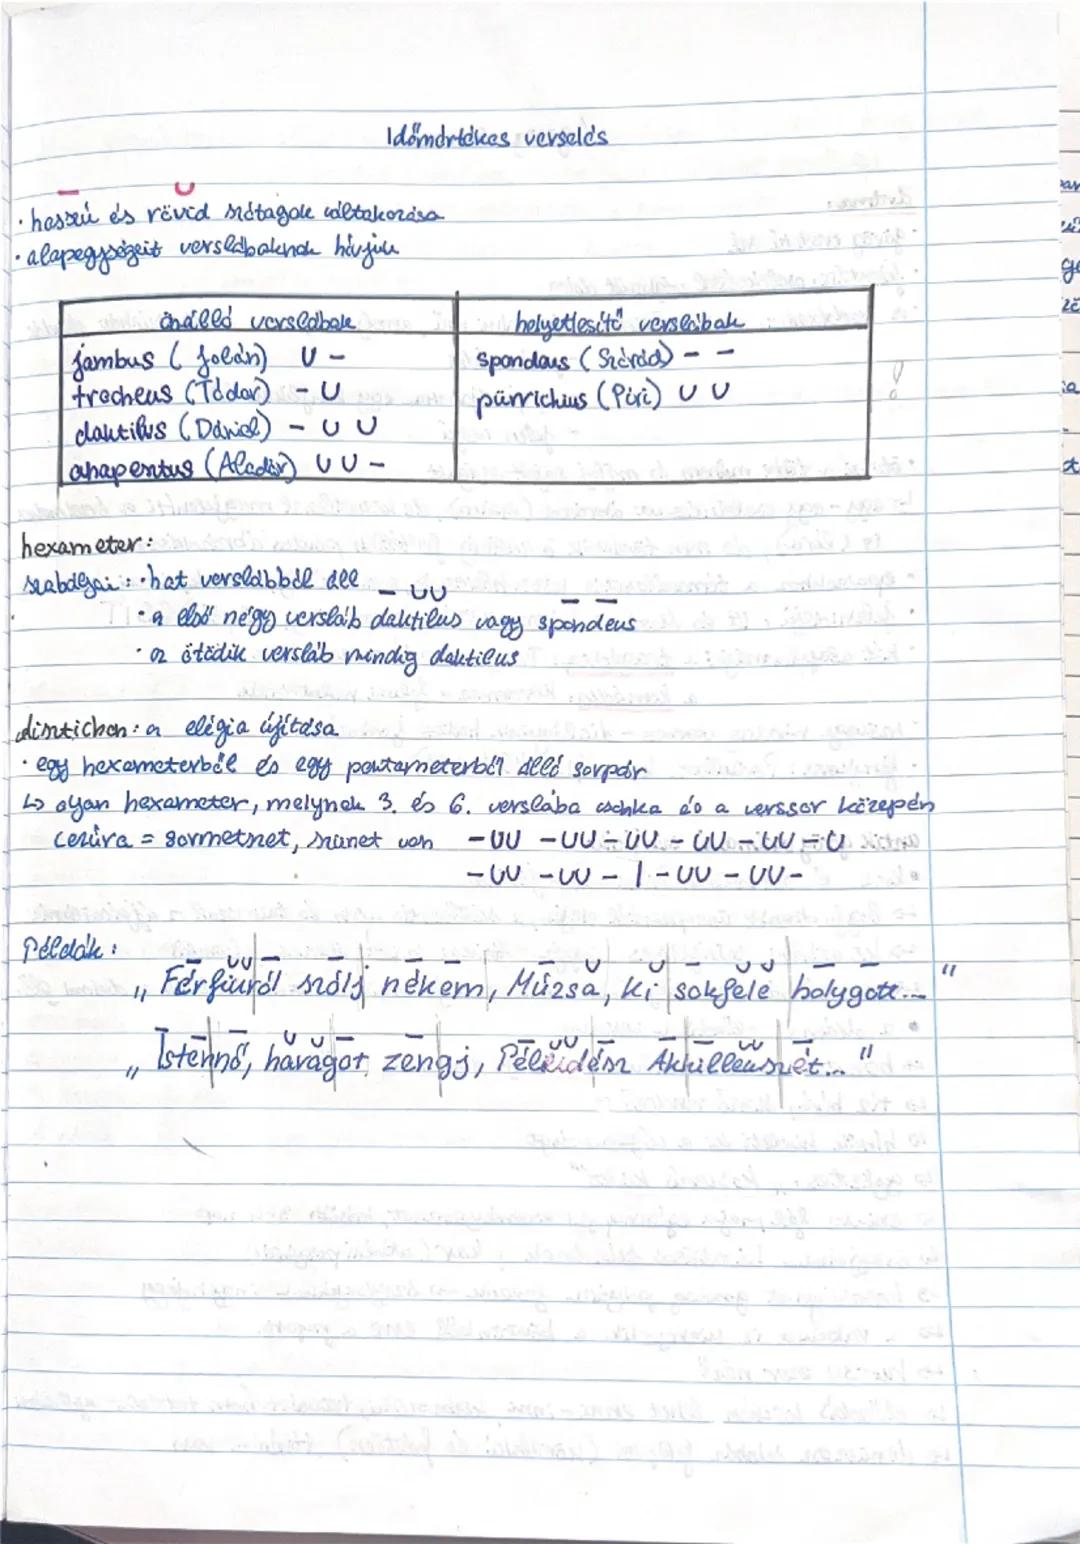 Időmértékes verselés
— U
• hosszú és rövid szótagok váltakozása
• alapegységeit verslábaknak hívjuk
önálló verslábak
helyettesítő verslábak
jambus (Jolán) U -
spondeus (Szórád) - -
trocheus (Tódor) - U
pürrichius (Piri) U U
daktilus (Dániel) - U U
anapesztus (Aladár) U U -
hexameter:
szabályai: • hat verslábból áll
- UU - -
• a első négy versláb daktilus vagy spondeus
• az ötödik versláb mindig daktilus
disztichon: a elégia újítása
• egy hexameterből és egy pentameterből álló sorpár
↳ olyan hexameter, melynek 3. és 6. verslába csonka és a verssor közepén
cezúra = sormetszet, szünet van -UU -UU -UU -UU -UU -U
-UU -UU - | -UU -UU-
Példák:
„Férfiúról szólj nékem, Múzsa, ki sokfelé bolygott..."
„Istennő, haragot zengj, Péleidész Akhilleuszét..."